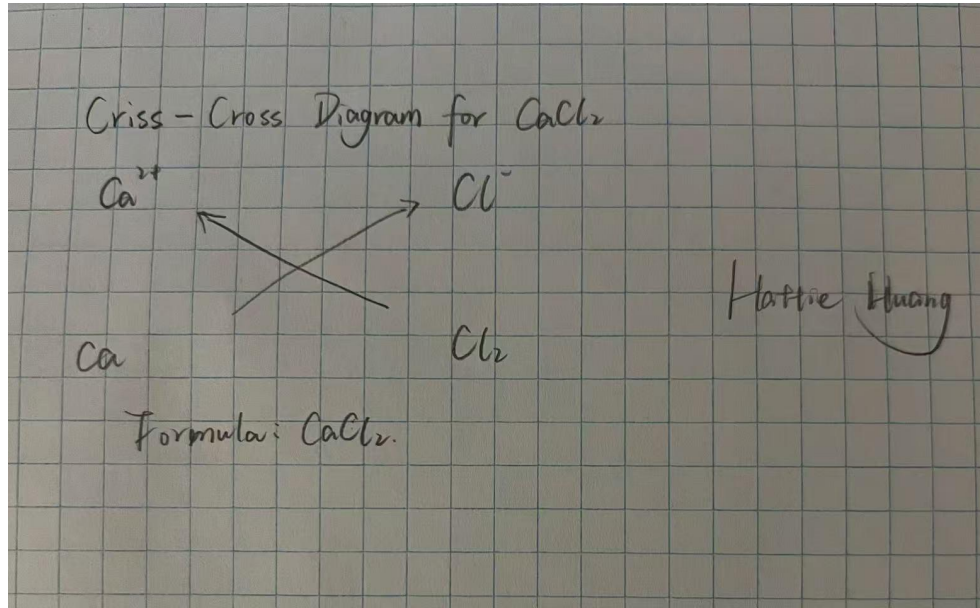 Criss - Cross Diagram for CaCl₂
Ca²⁺ Cl⁻
Hattie Huang
Ca Cl₂
Formula: CaCl₂.